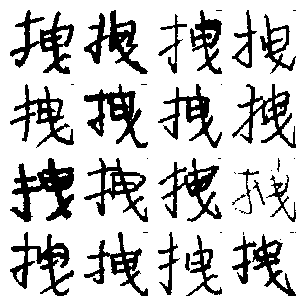 拽拽拽拽
拽拽拽拽
拽拽拽拽
拽拽拽拽